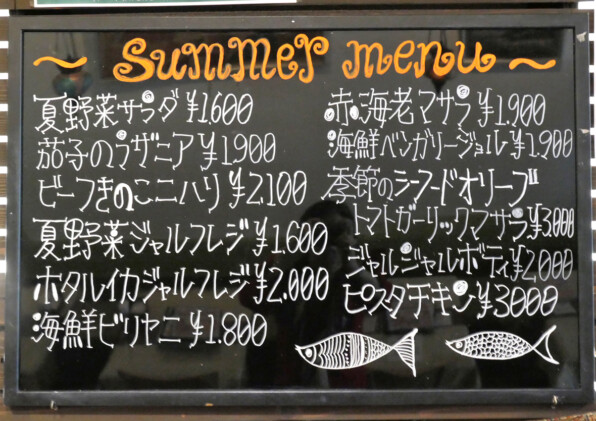 ~ summer menu ~
夏野菜サラダ ¥1600
茄子のラザニア ¥1.900
ビーフきのこニハリ ¥2,100
夏野菜ジャルフレジ ¥1.600
ホタルイカジャルフレジ ¥2.000
海鮮ビリヤニ ¥1.800
赤海老マサラ ¥1.900
海鮮ベンガリージョル ¥1.900
季節のシーフードオリーブ
トマトガーリックマサラ ¥3,000
ジャルジャルボティ ¥2,000
ピスタチキン ¥3000